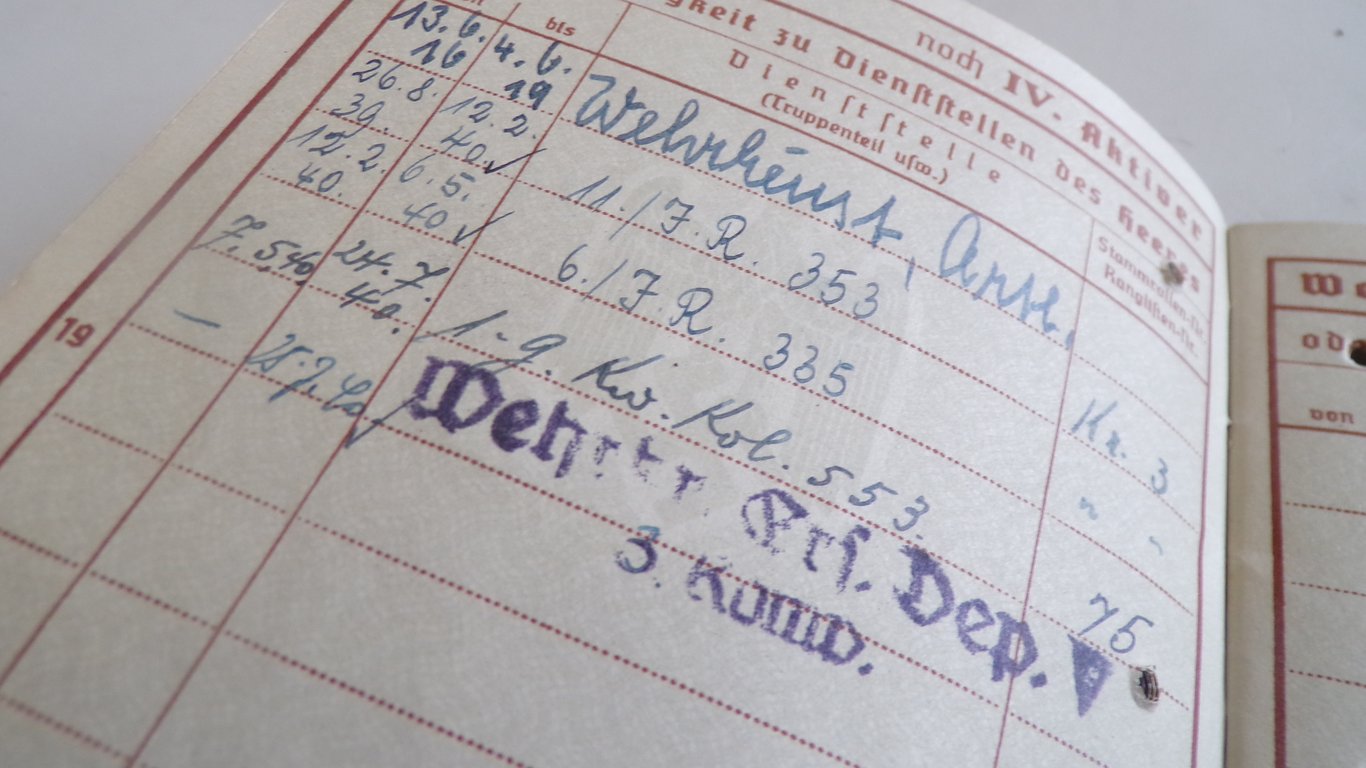 noch IV. Aktiver
gkeit zu Dienststellen des Heeres
bis
Dienststelle
(Truppenteil usw.)
Stammrollen-Nr.
Ranglisten-Nr.
13. 6. 16
4. 6. 19
Wehrdienst,
26. 8. 39.
12. 2. 40. ✓
11./J.R. 353
Kr. 3
12. 2. 40.
6. 5. 40 ✓
6./J.R. 335
" -
7. 5 40
24. 7. 40.
1. g. Kw. Kol. 553.
75
19
—
25. 7. 40 ✓
Wehrkr. Ers. Dep. V
3. Komp.
od
von